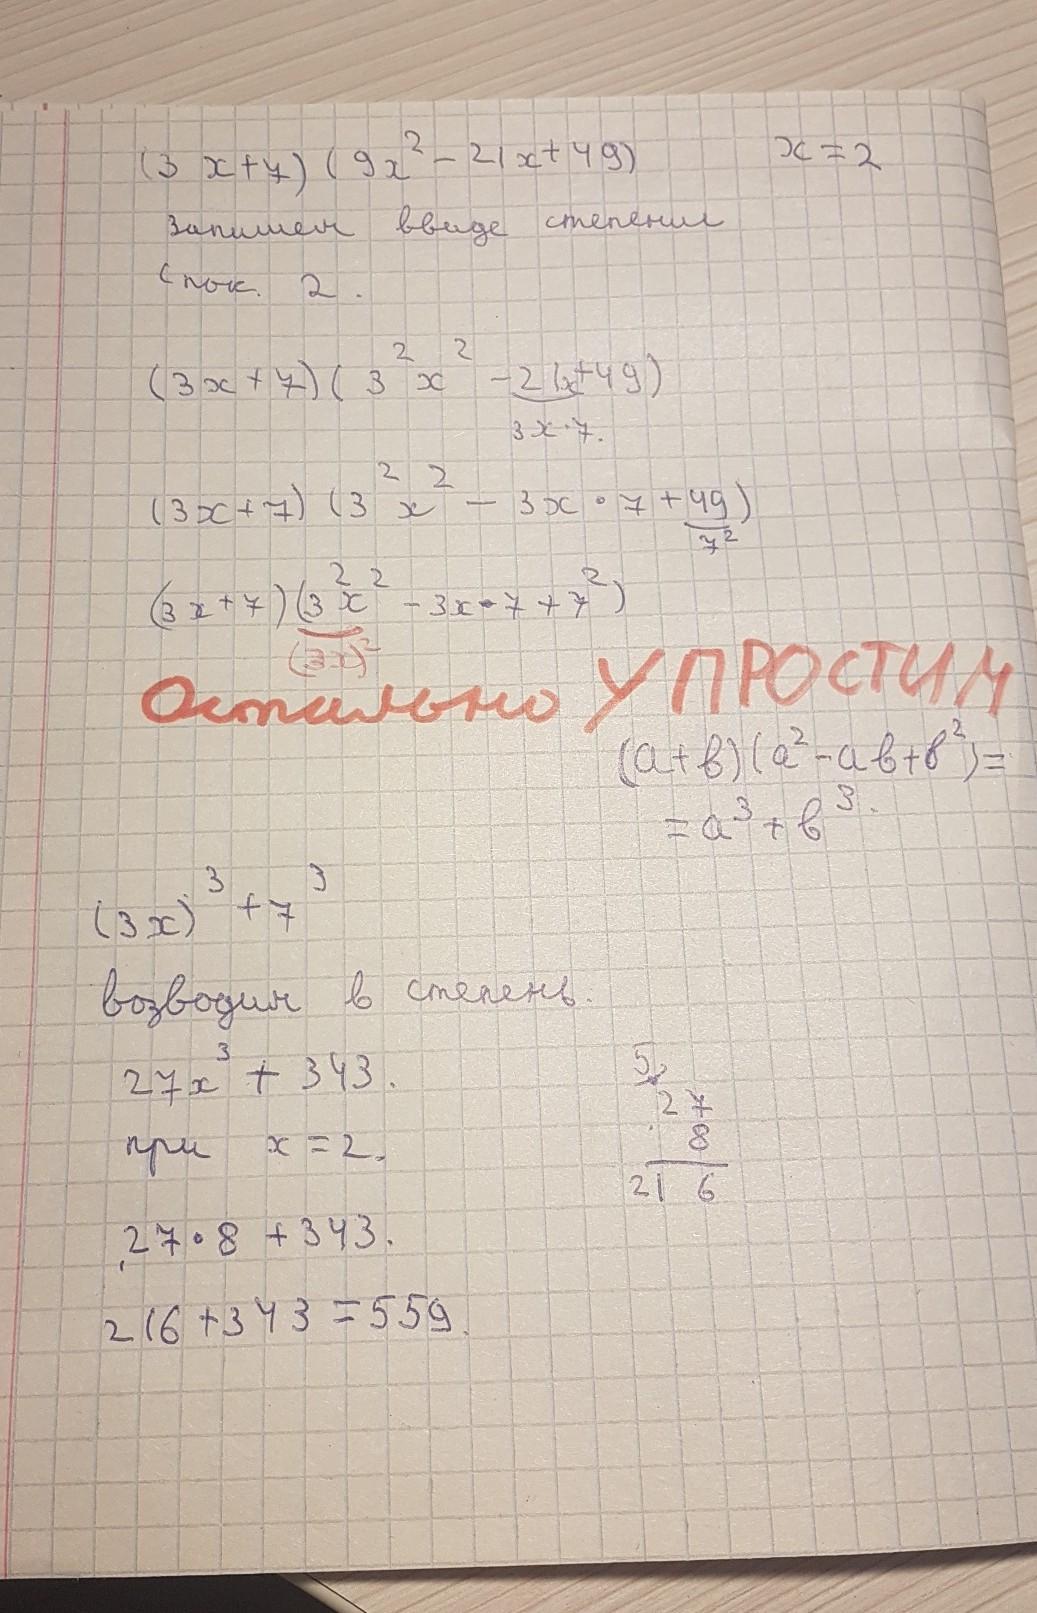 (3 x+7) (9x² - 21x+49) x = 2
Запишем ввиде степени
с пок. 2.
(3x+7)(3²x² - 21x+49)
3x·7.
(3x+7) (3²x² - 3x • 7 + 49)
7²
(3x+7)(3²x² - 3x•7 + 7²)
(3x)²
Остально УПРОСТИМ
(а+в)(а²-ав+в²)=
= а³+в³.
(3x)³ + 7³
возводим в степень.
27x³ + 343.
5
27
при x = 2.
8
216
27•8 + 343.
216 + 343 = 559.